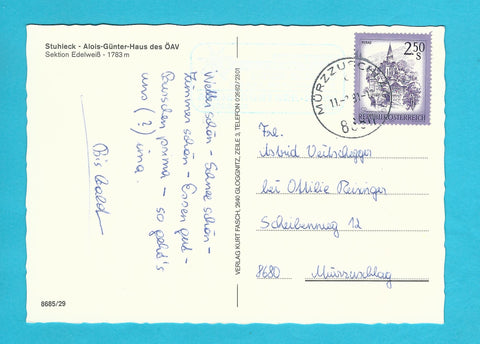 Stuhleck - Alois-Günter-Haus des ÖAV
Sektion Edelweiß - 1783 m
Wetter schön - Schnee schön -
Zimmer schön - Essen gut -
Burschen prima - so geht's
uns (2) ima.
Bis bald
8685/29
VERLAG KURT FASCH, 2640 GLOGGNITZ, ZEILE 3, TELEFON 02662/2201
2.50 S
REPUBLIK ÖSTERREICH
MÜRZZUSCHLAG
Frl.
Astrid Veitschegger
bei Ottilie Reisinger
Scheibenweg 12
8680 Mürzzuschlag